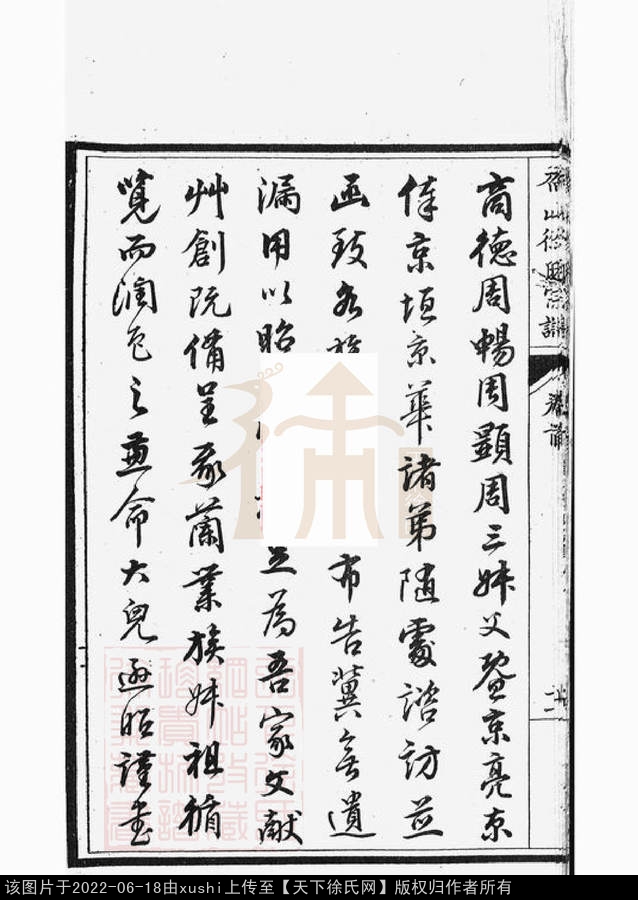 商德周暢周顯周三叔父暨京亮京
偉京垣京華諸弟隨處諮訪並
函致各族布告冀無遺
漏用以昭為吾家文獻
艸創既備呈蘭業族叔祖循
覽而潤色之並命大兒遜昭謹書
香山徐氏宗譜
该图片于2022-06-18由xushi上传至【天下徐氏网】版权归作者所有